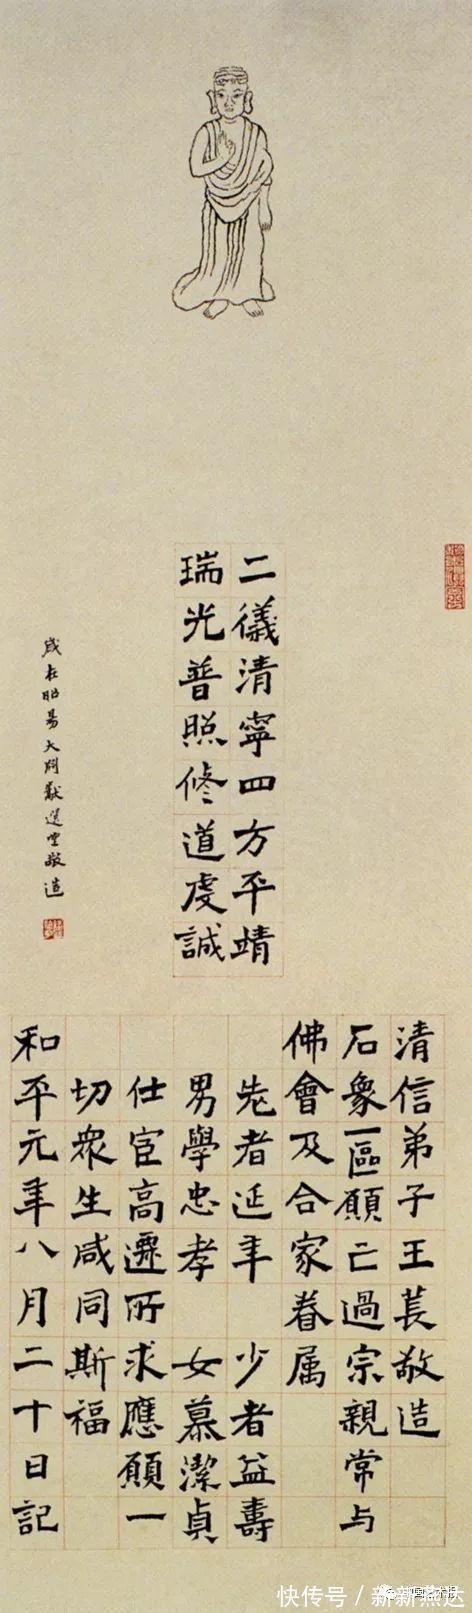 二儀清寧四方平靖
瑞光普照修道虔誠
歲在昭昜大淵獻選堂敬造
清信弟子王萇敬造
石象一區願亡過宗親常与
佛會及合家眷属
老者延年 少者益壽
男學忠孝 女慕潔貞
仕宦高遷所求應願一
切衆生咸同斯福
和平元年八月二十日記
快传号／新新燕达